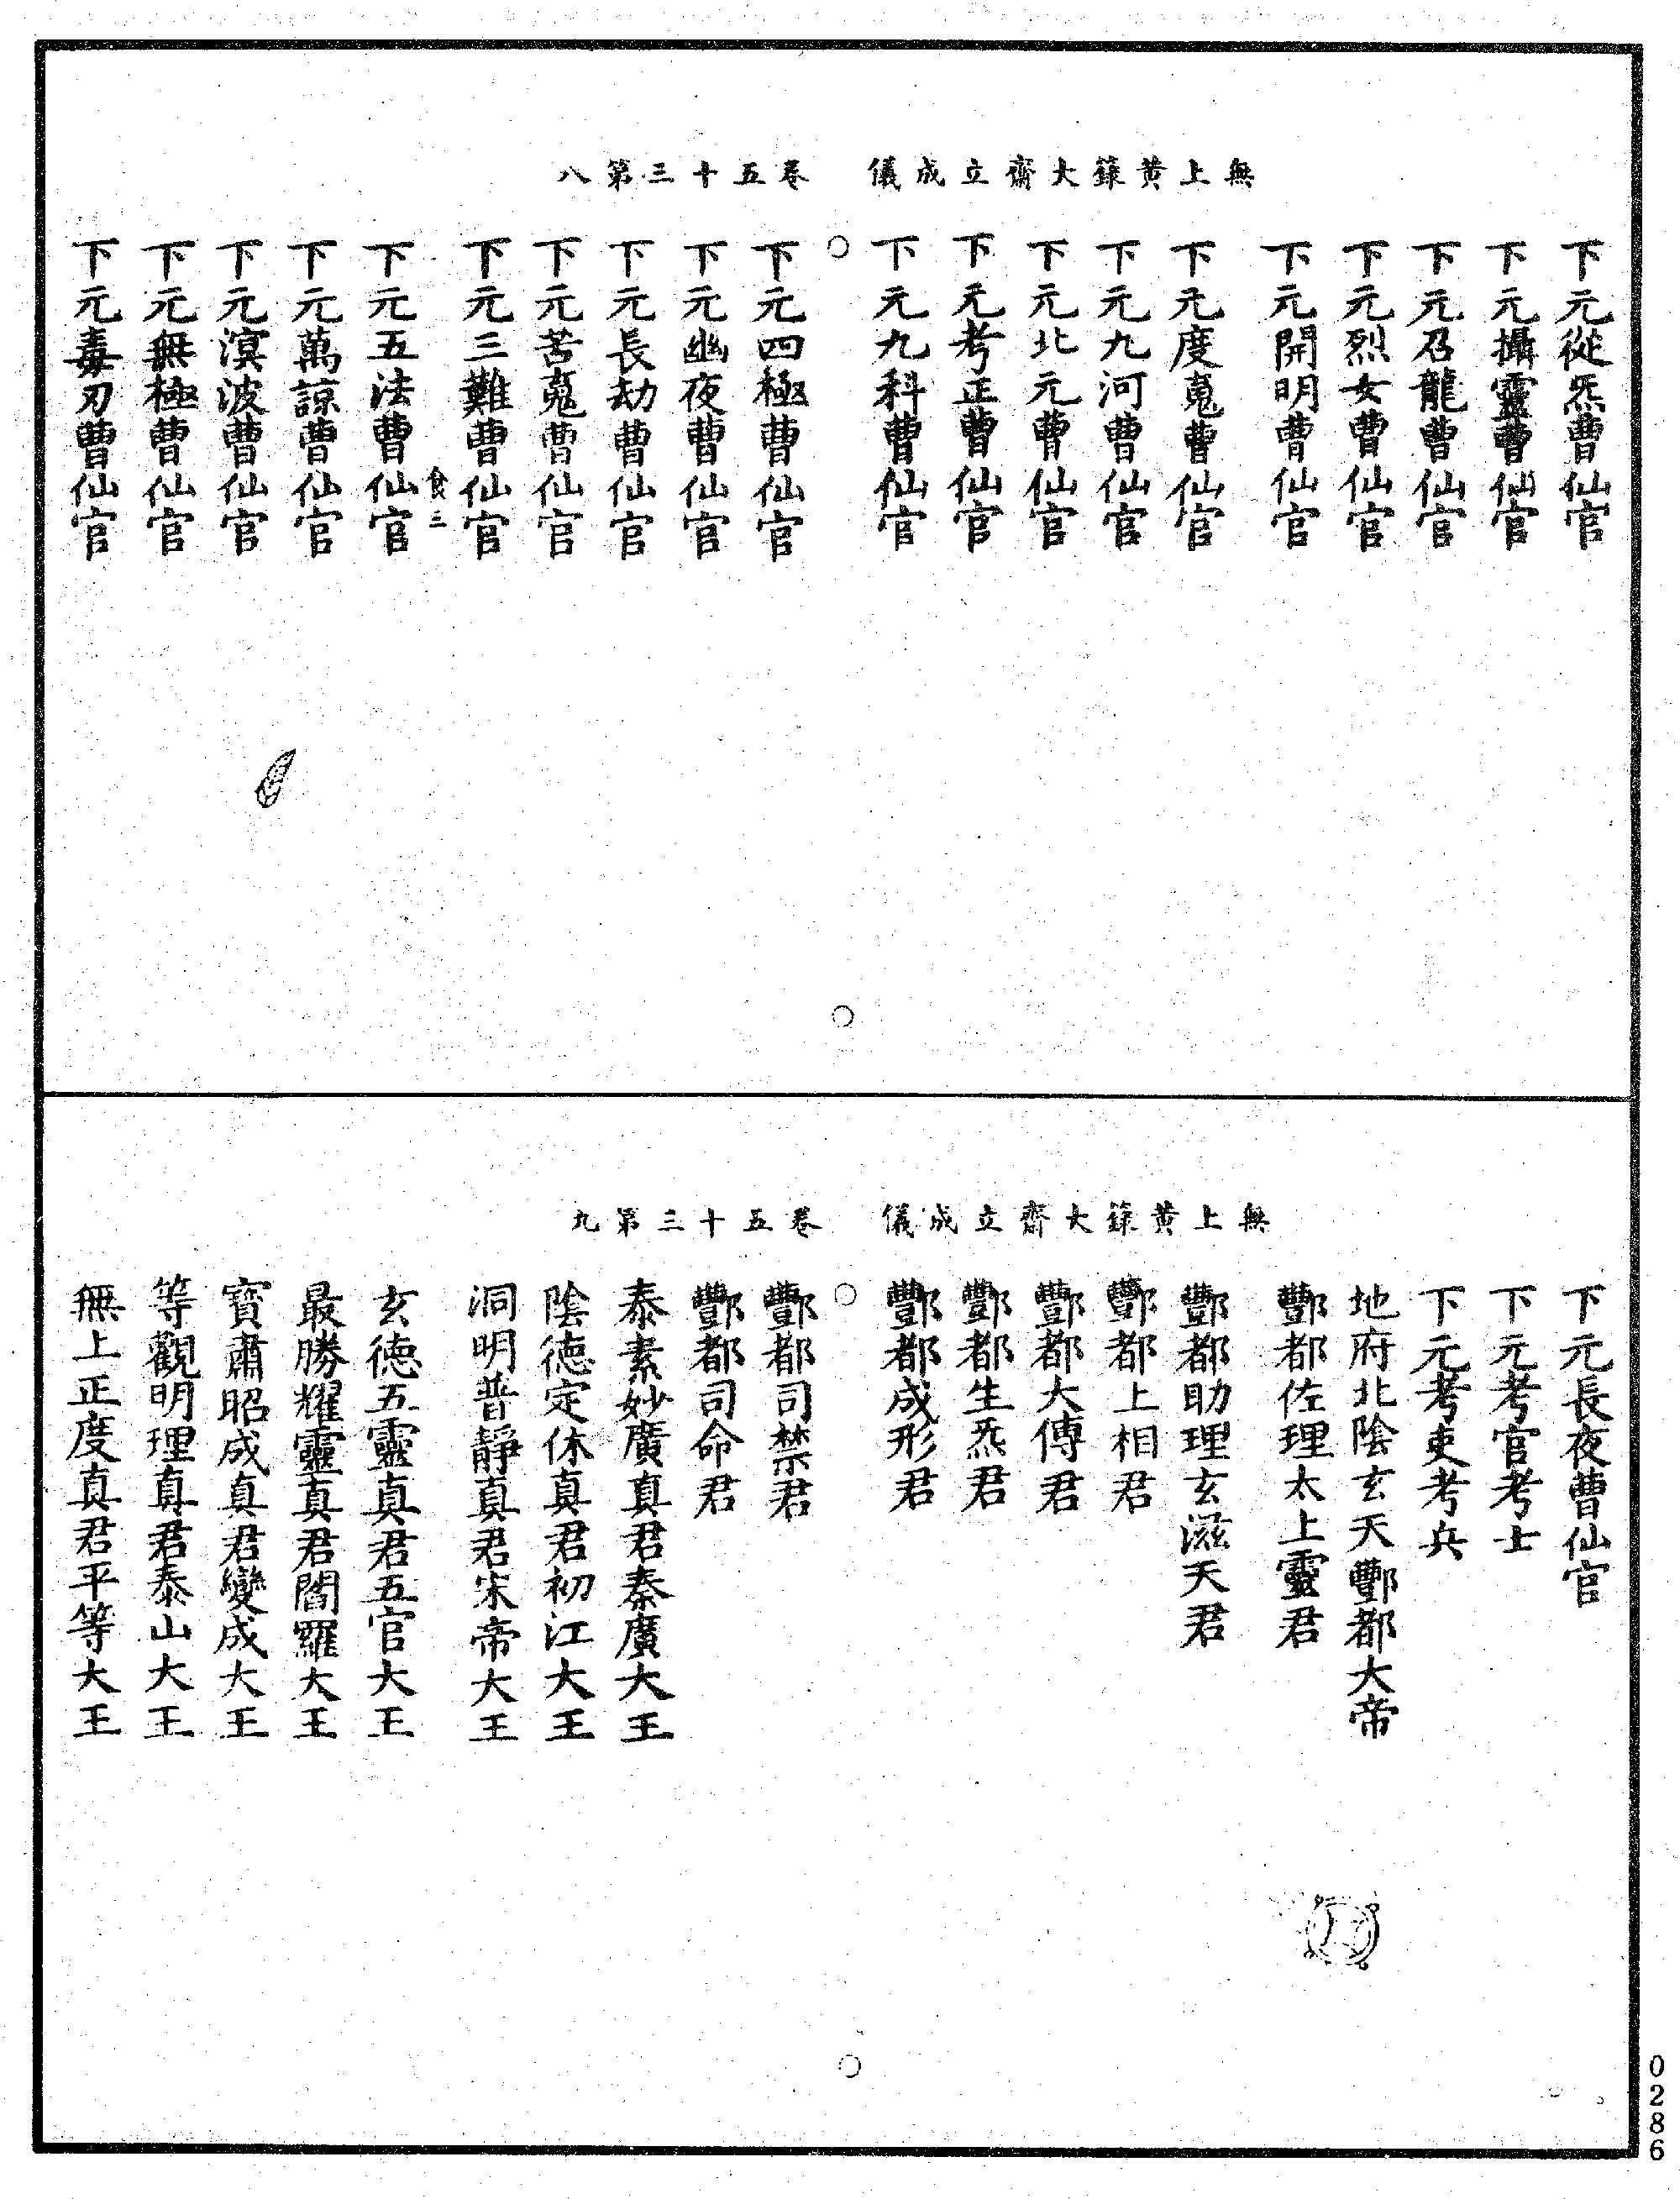 無上黃籙大齋立成儀　卷五十三第八
下元從炁曹仙官
下元攝靈曹仙官
下元召龍曹仙官
下元烈女曹仙官
下元開明曹仙官
下元度䰟曹仙官
下元九河曹仙官
下元北元曹仙官
下元考正曹仙官
下元九科曹仙官
下元四極曹仙官
下元幽夜曹仙官
下元長劫曹仙官
下元苦䰟曹仙官
下元三難曹仙官
食三
下元五法曹仙官
下元萬諒曹仙官
下元溟波曹仙官
下元無極曹仙官
下元毒刃曹仙官
無上黃籙大齋立成儀　卷五十三第九
下元長夜曹仙官
下元考官考士
下元考吏考兵
地府北陰玄天酆都大帝
酆都佐理太上靈君
酆都助理玄滋天君
酆都上相君
酆都大傅君
酆都生炁君
酆都成形君
酆都司禁君
酆都司命君
泰素妙廣真君秦廣大王
陰德定休真君初江大王
洞明普靜真君宋帝大王
玄德五靈真君五官大王
最勝耀靈真君閻羅大王
寶肅昭成真君變成大王
等觀明理真君泰山大王
無上正度真君平等大王
0286